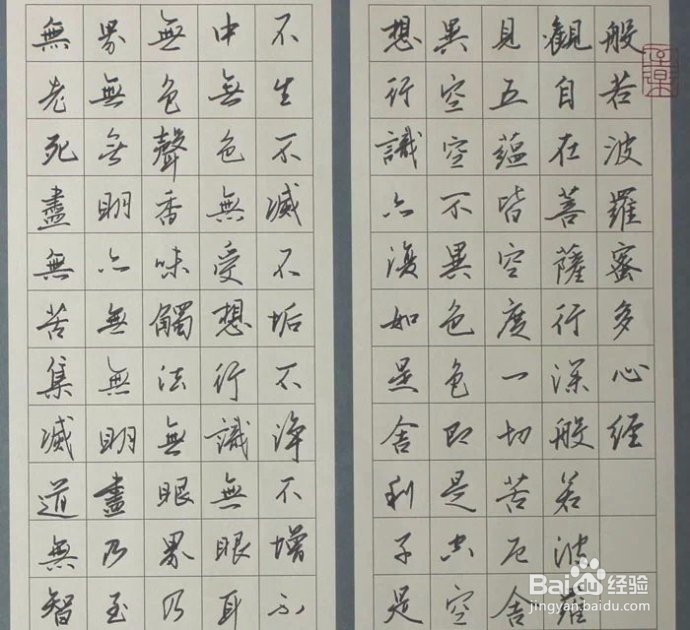 般若波羅蜜多心経
觀自在菩薩行深般若波羅
見五蘊皆空度一切苦厄舍
異空空不異色色即是空空
想行識亦復如是舍利子是
不生不滅不垢不淨不增不
中無色無受想行識無眼耳
無色聲香味觸法無眼界乃
界無無明亦無無明盡乃至
無老死盡無苦集滅道無智
Baidu经验
jingyan.baidu.com